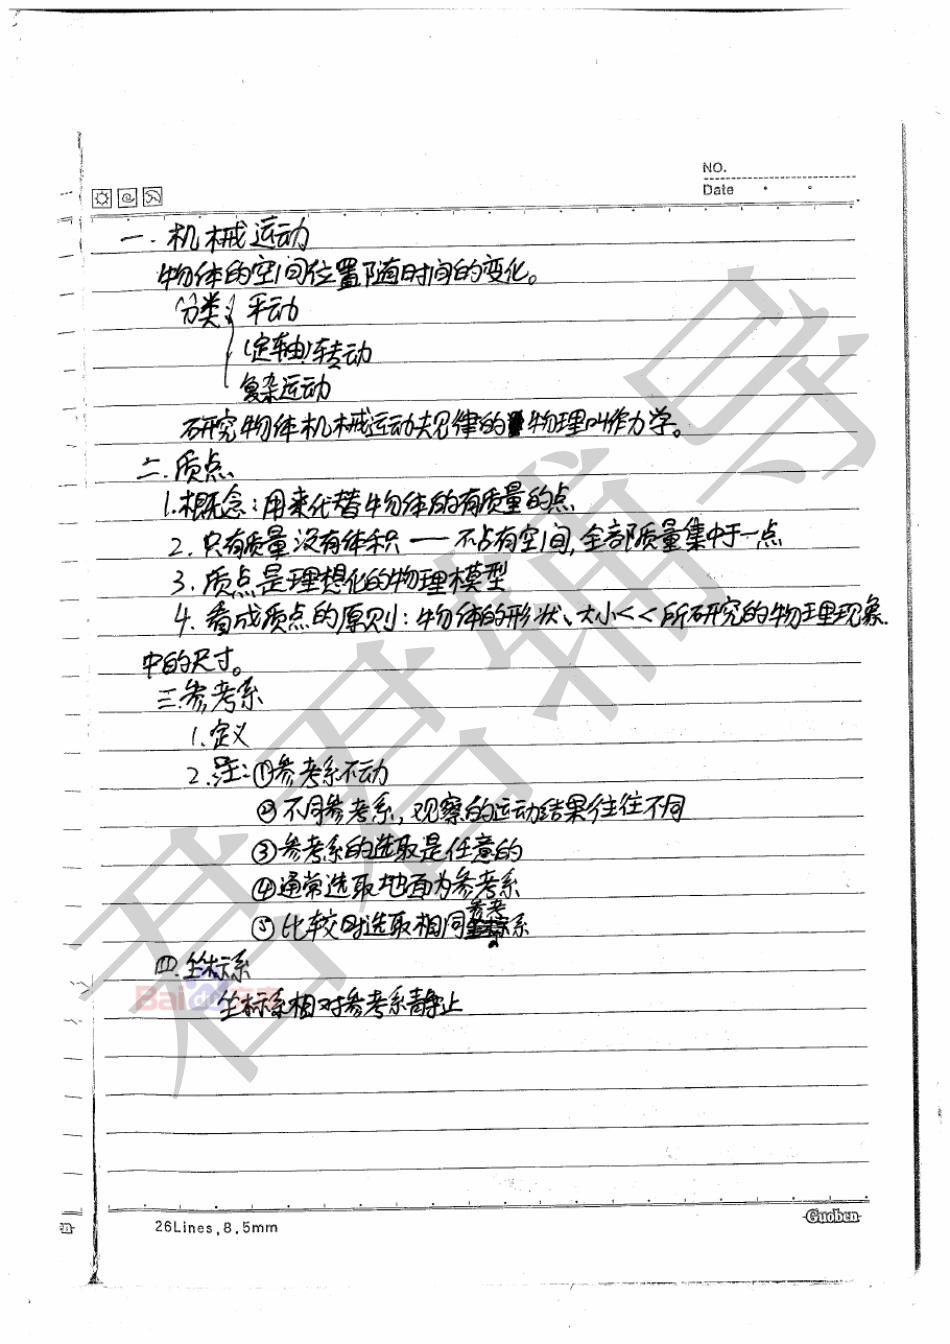 NO.
Date
一.机械运动
物体的空间位置随时间的变化。
分类{ 平动
(定轴)转动
复杂运动
研究物体机械运动规律的物理叫作力学。
二.质点
1.概念:用来代替物体的有质量的点
2.只有质量没有体积——不占有空间,全部质量集中于一点
3.质点是理想化的物理模型
4.看成质点的原则:物体的形状、大小<<所研究的物理现象
中的尺寸。
三.参考系
1.定义
2.注:①参考系不动
②不同参考系,观察的运动结果往往不同
③参考系的选取是任意的
④通常选取地面为参考系
⑤比较时选取相同参考系
四.坐标系
坐标系相对参考系静止
26Lines,8.5mm
Guoben
君君辅导